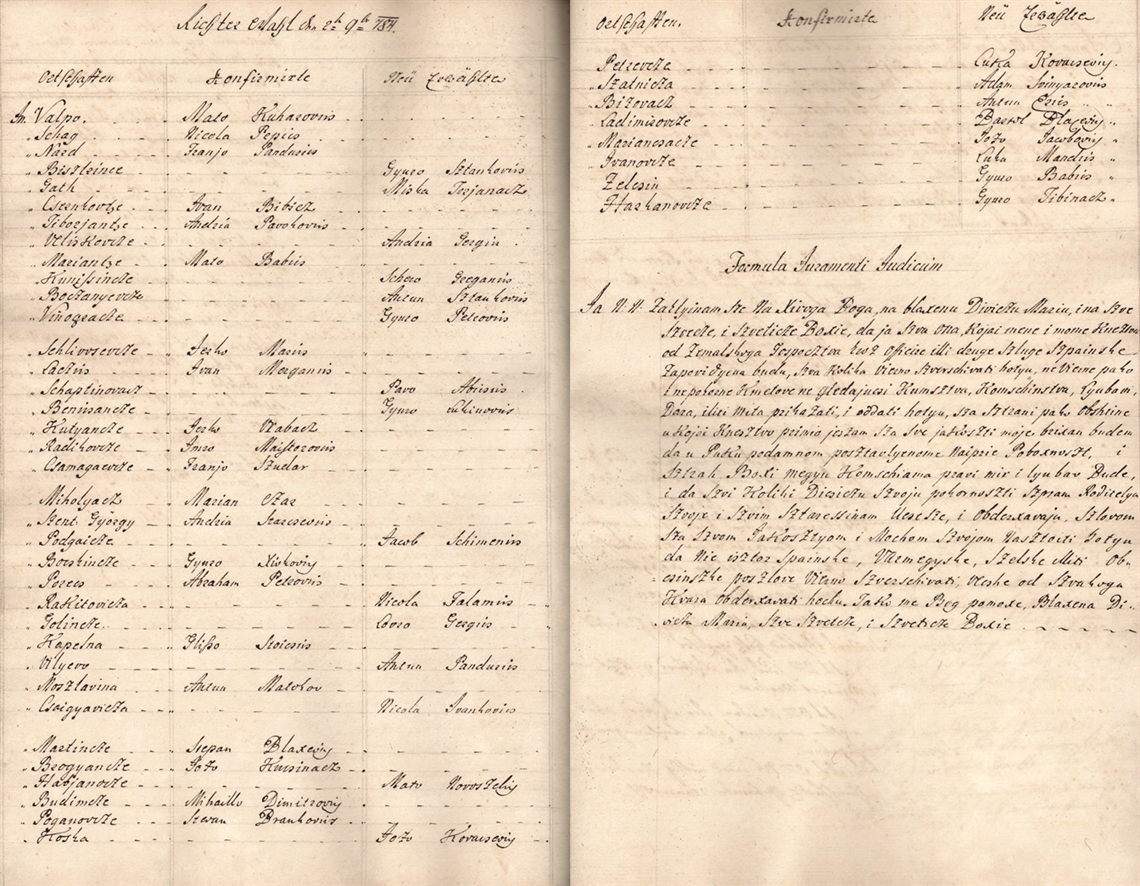 Richter Wahl den 2t 9b 1787.
Ortschaften Konfirmirte Neü Erwählte
In Valpo. Mato Kuharovics
" Schag Nicola Pepics
" Nard Franjo Pandurics
" Bisztrince Gyuro Sztankovics
" Gath Miska Terjanacz
" Csernkovcze Ivan Bibicz
" Tiborjancze Andria Pavokovics
" Veliskovcze Andria Gergin
" Mariancze Mato Babics
" Kunissincze Schero Gerganics
" Boctanyevcze Antun Sztankovics
" Vinogracze Gyuro Petrovics
" Schlivosevcze Jerko Marics
" Laczics Ivan Morganics
" Schaptinovacz Pavo Abricsis
" Benisancze Gyuro Lukinovics
" Kutyancze Jerko Vrabacz
" Radikovcze Imro Maistorovics
" Csamagaevcze Franjo Szudar
" Miholyacz Marian Czar
" Szent György Andria Szarcsevics
" Podgaicze Jacob Schimenics
" Borskincze Gyuro Xivkovics
" Porecs Abraham Petrovics
" Rakitovicza Nicola Salamis
" Golincze Lovro Gergics
" Kapelna Glisso Stoicsics
" Vilyevo Antun Pandurics
" Moszlavina Antun Matokov
" Csaigyavicza Nicola Ivankovics
" Martincze Stepan Blaxevics
" Brogyancze Jozo Kursinacz
" Harjanovcze Mato Novoszelics
" Budimcze Mihaillo Dimitrovics
" Poganovcze Stevan Brankovics
" Koska Jozo Kovacsevics
Ortschaften. Konfirmirte Neü Erwählte
Petrovcze Luka Kovacsevics
Szatnicza Adam Svinyarovics
Bizovacz Antun
Ladimirovcze Bartol Blaxevics "
Mariancsacze Jozo Jacobovics "
Ivanovcze Luka Mandics "
Zelcsin Gyuro Babics "
Harkanovcze Gyuro Tibinacz "
Formula Juramenti Judicum
Ja N: N: Zaklyinam sze Na Xivoga Boga, na blaxenu Diviczu Mariu, i na szve
szvecze, i szveticze Boxie, da ja szva ona, Kojai mene i mome Knezsvu
od Zemalskoga Gospocztva kroz officire illi druge szluge szpainske
Zapovidyena budu, szva kolika virno szverschivati hotyu, ne virne pako
i nepokorne kmetove ne gledajucsi Kumsztva, Komschinsztva, lyubavi,
Dara, illiti mita prikazati, i oddati hotyu, sza sztrani pako Obshine
u kojoj Knesztvo primio jeszam sza sve jakoszti moje brixan budem
da u Puku podamnom posztavlyenome Naiprie Pobonoszt, i
sztrah Boxi megyu Komschiama pravi mir i lyubav Bude,
i da szvi Koliki Diczicu szvoju pokornoszti szpram Roditelya
szvoje i szvim sztaressinam Ucsete, i Obderxavaju, szlovom
sza szvom Jakosztyom i Mochom szvojom Nasztoiti hotyu
da Nie isztor Spainske, Varmegyske, szelske illiti Ob-
csinszke poszlove virno szverschivati, veche od szvakoga
Kvara obderxavati hochu. Tako me Bog pomoxe, Blaxena Di-
vicza Maria, szve szvecze, i szveticze Boxie